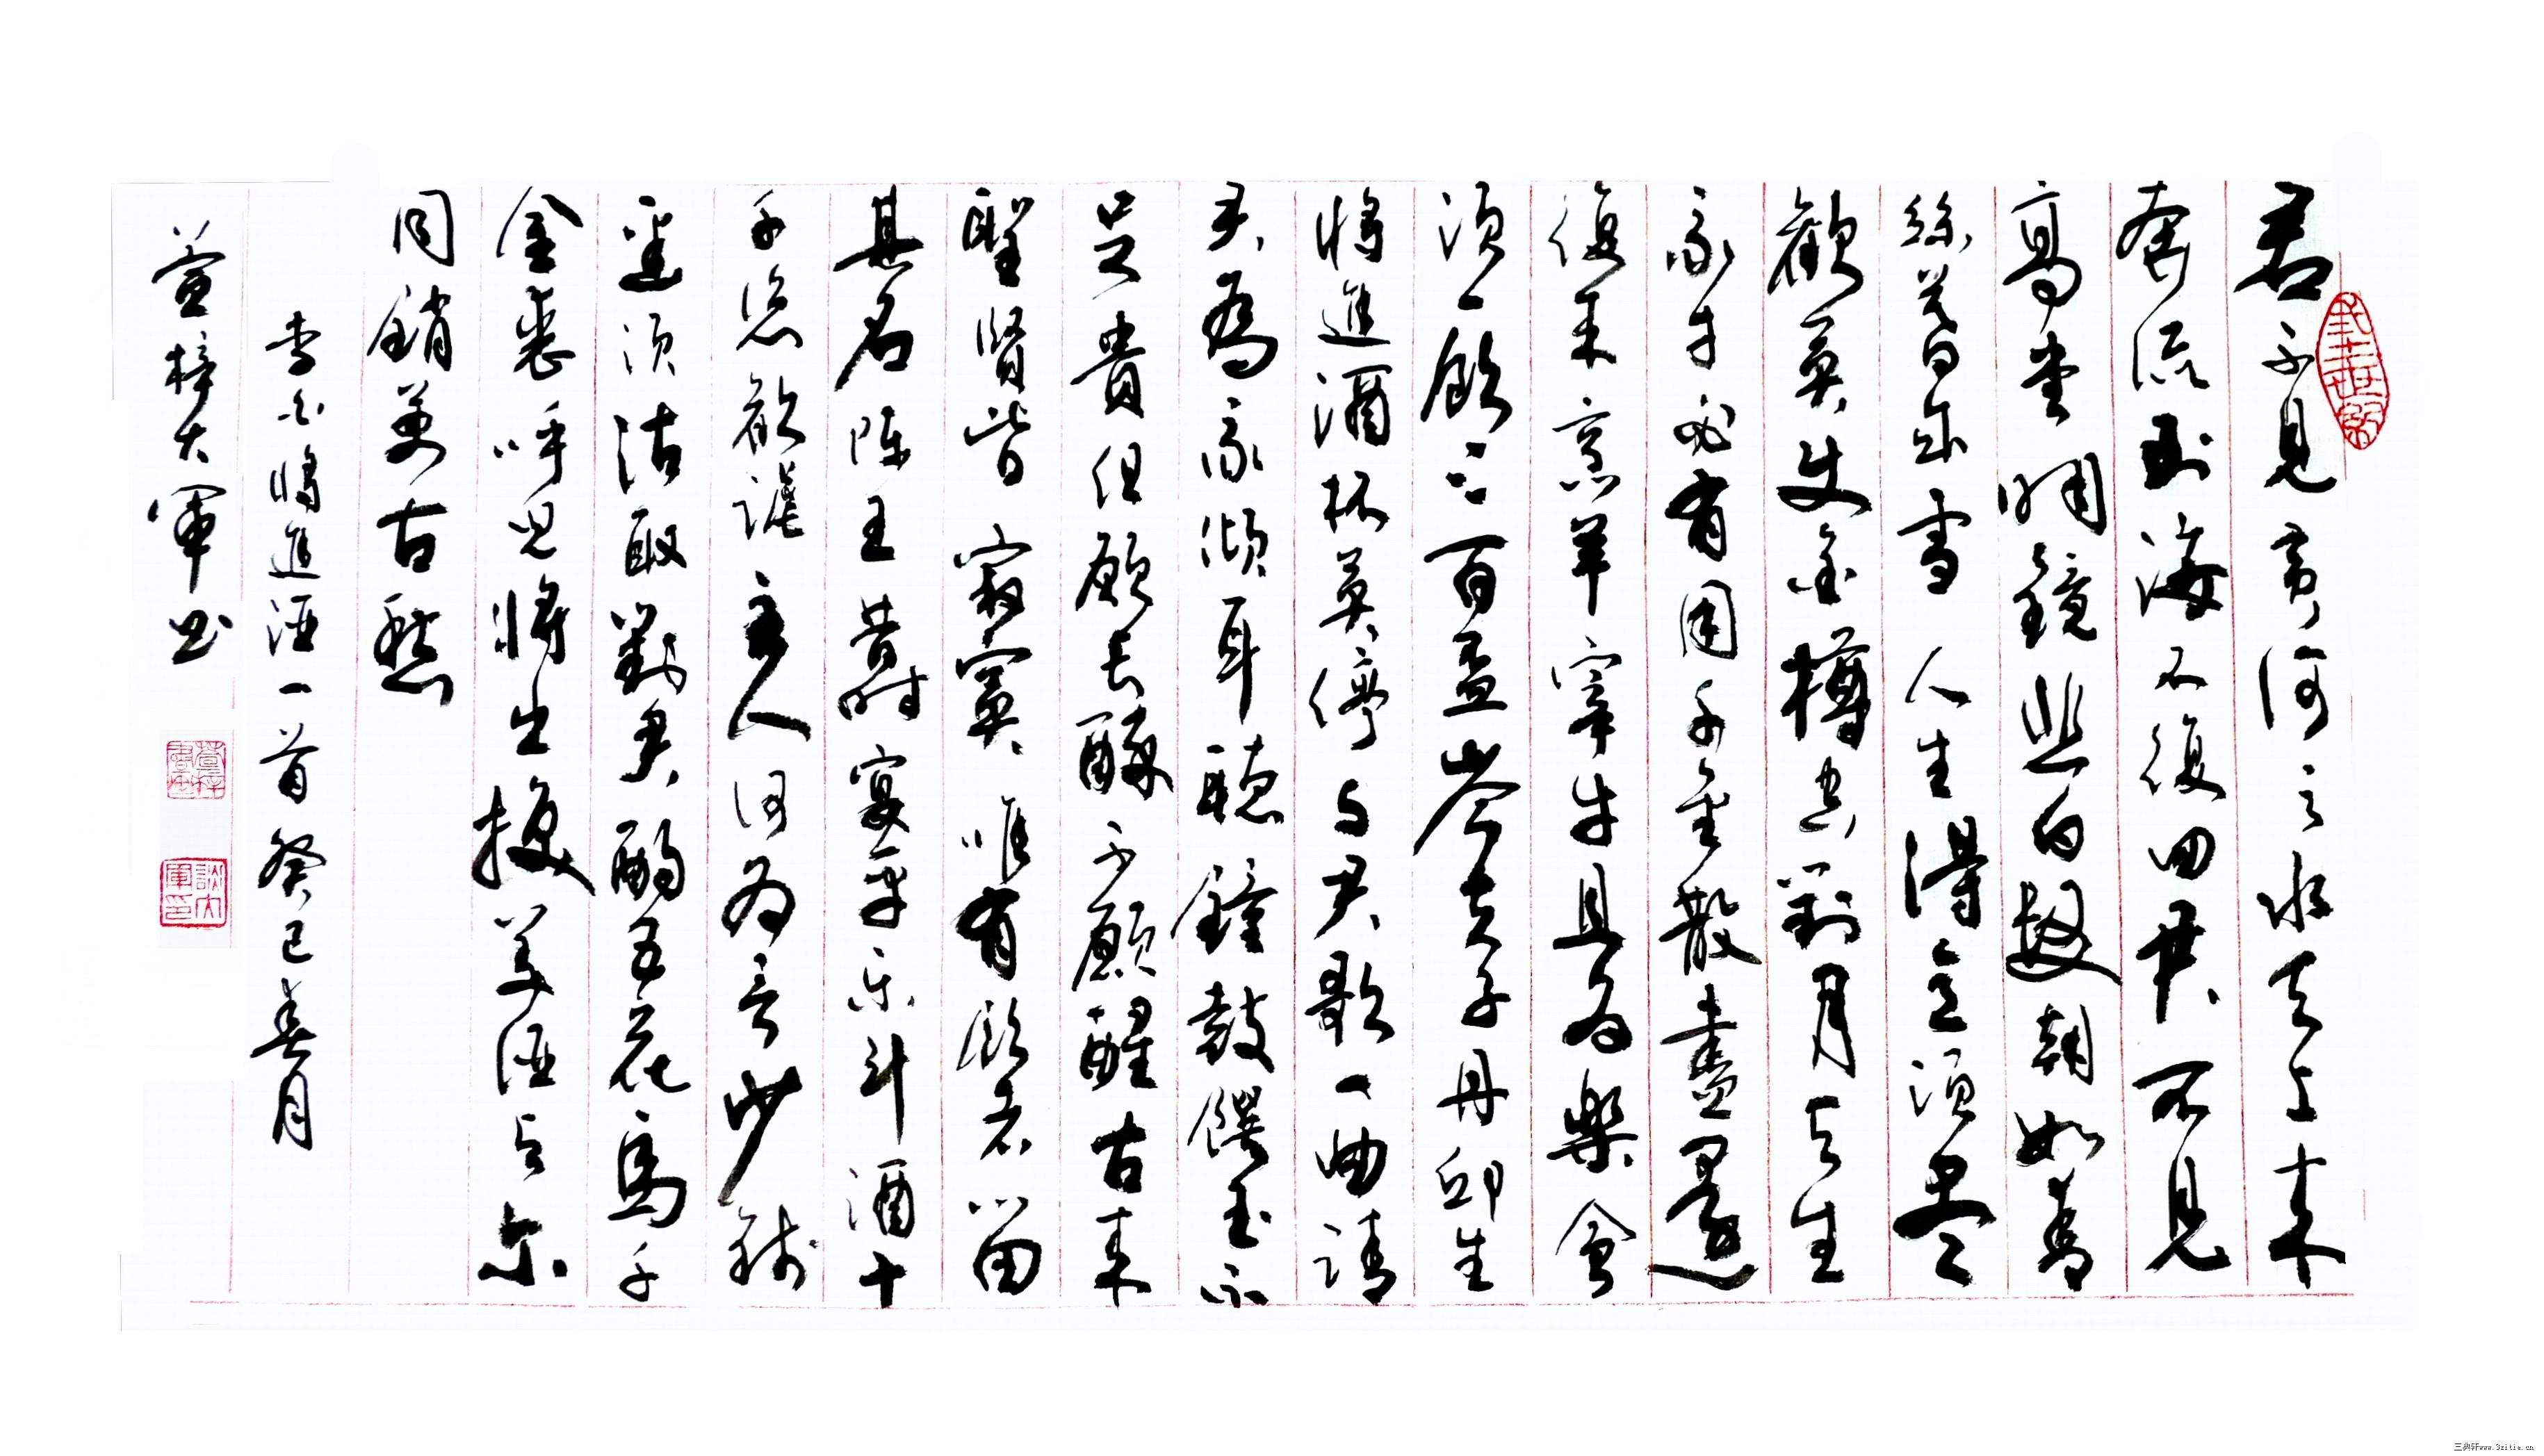 君不見黃河之水天上來
奔流到海不復回君不見
高堂明鏡悲白髮朝如青
絲暮成雪人生得意須盡
歡莫使金樽空對月天生
我才必有用千金散盡還
復來烹羊宰牛且為樂會
須一飲三百盃岑夫子丹邱生
將進酒杯莫停与君歌一曲請
君為我傾耳聽鐘鼓饌玉不
足貴但願長醉不願醒古來
聖賢皆寂寞唯有飲者留
其名陳王昔時宴平樂斗酒十
千恣歡謔主人何為言少錢
逕須沽取對君酌五花馬千
金裘呼兒將出換美酒与尔
同銷萬古愁
李白將進酒一首癸巳春月
萱梓大軍书
談大軍印
www.3zitie.cn